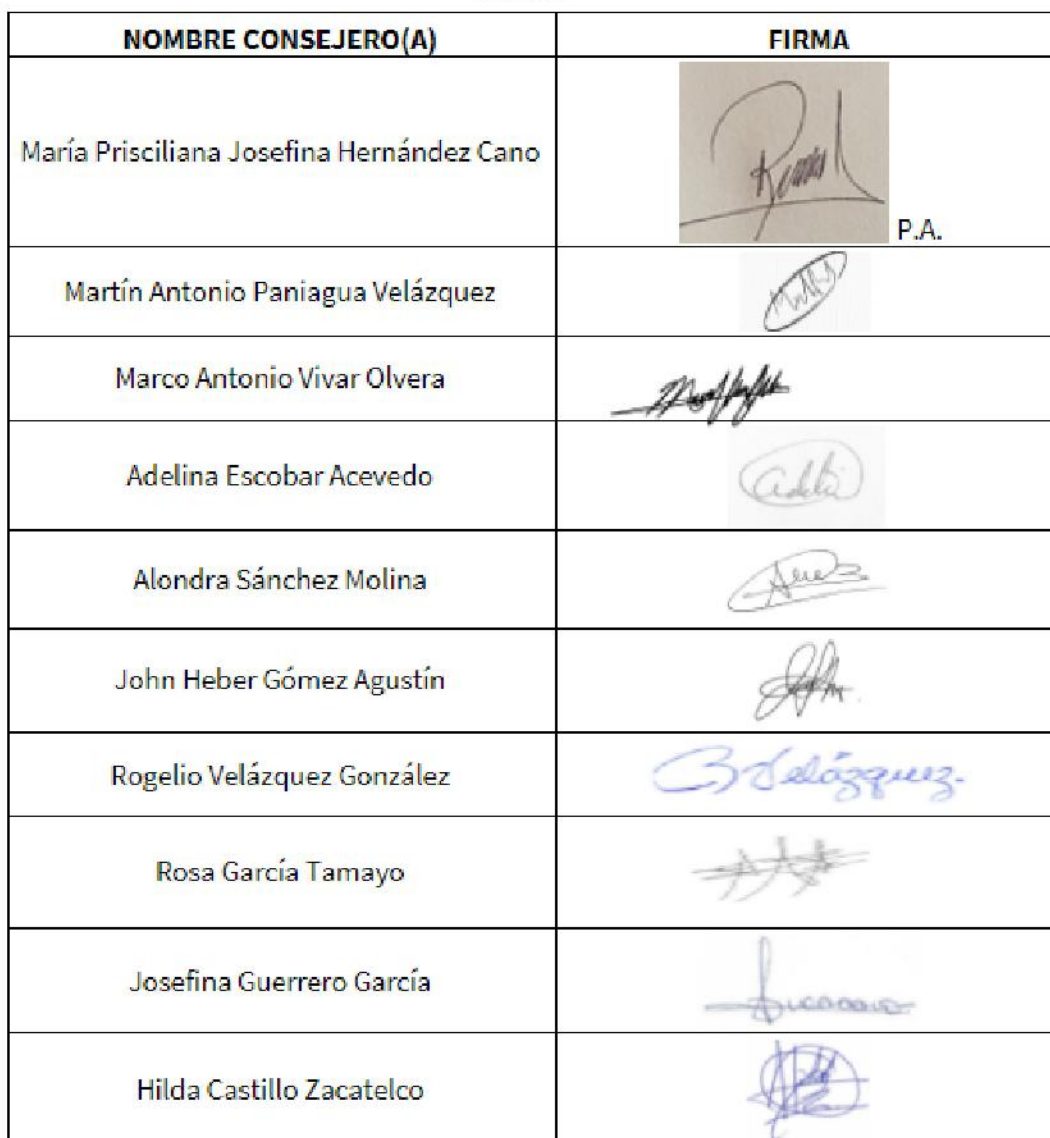 NOMBRE CONSEJERO(A) FIRMA
María Prisciliana Josefina Hernández Cano
P.A.
Martín Antonio Paniagua Velázquez
Marco Antonio Vivar Olvera
Adelina Escobar Acevedo
Alondra Sánchez Molina
John Heber Gómez Agustín
Rogelio Velázquez González Velázquez.
Rosa García Tamayo
Josefina Guerrero García
Hilda Castillo Zacatelco